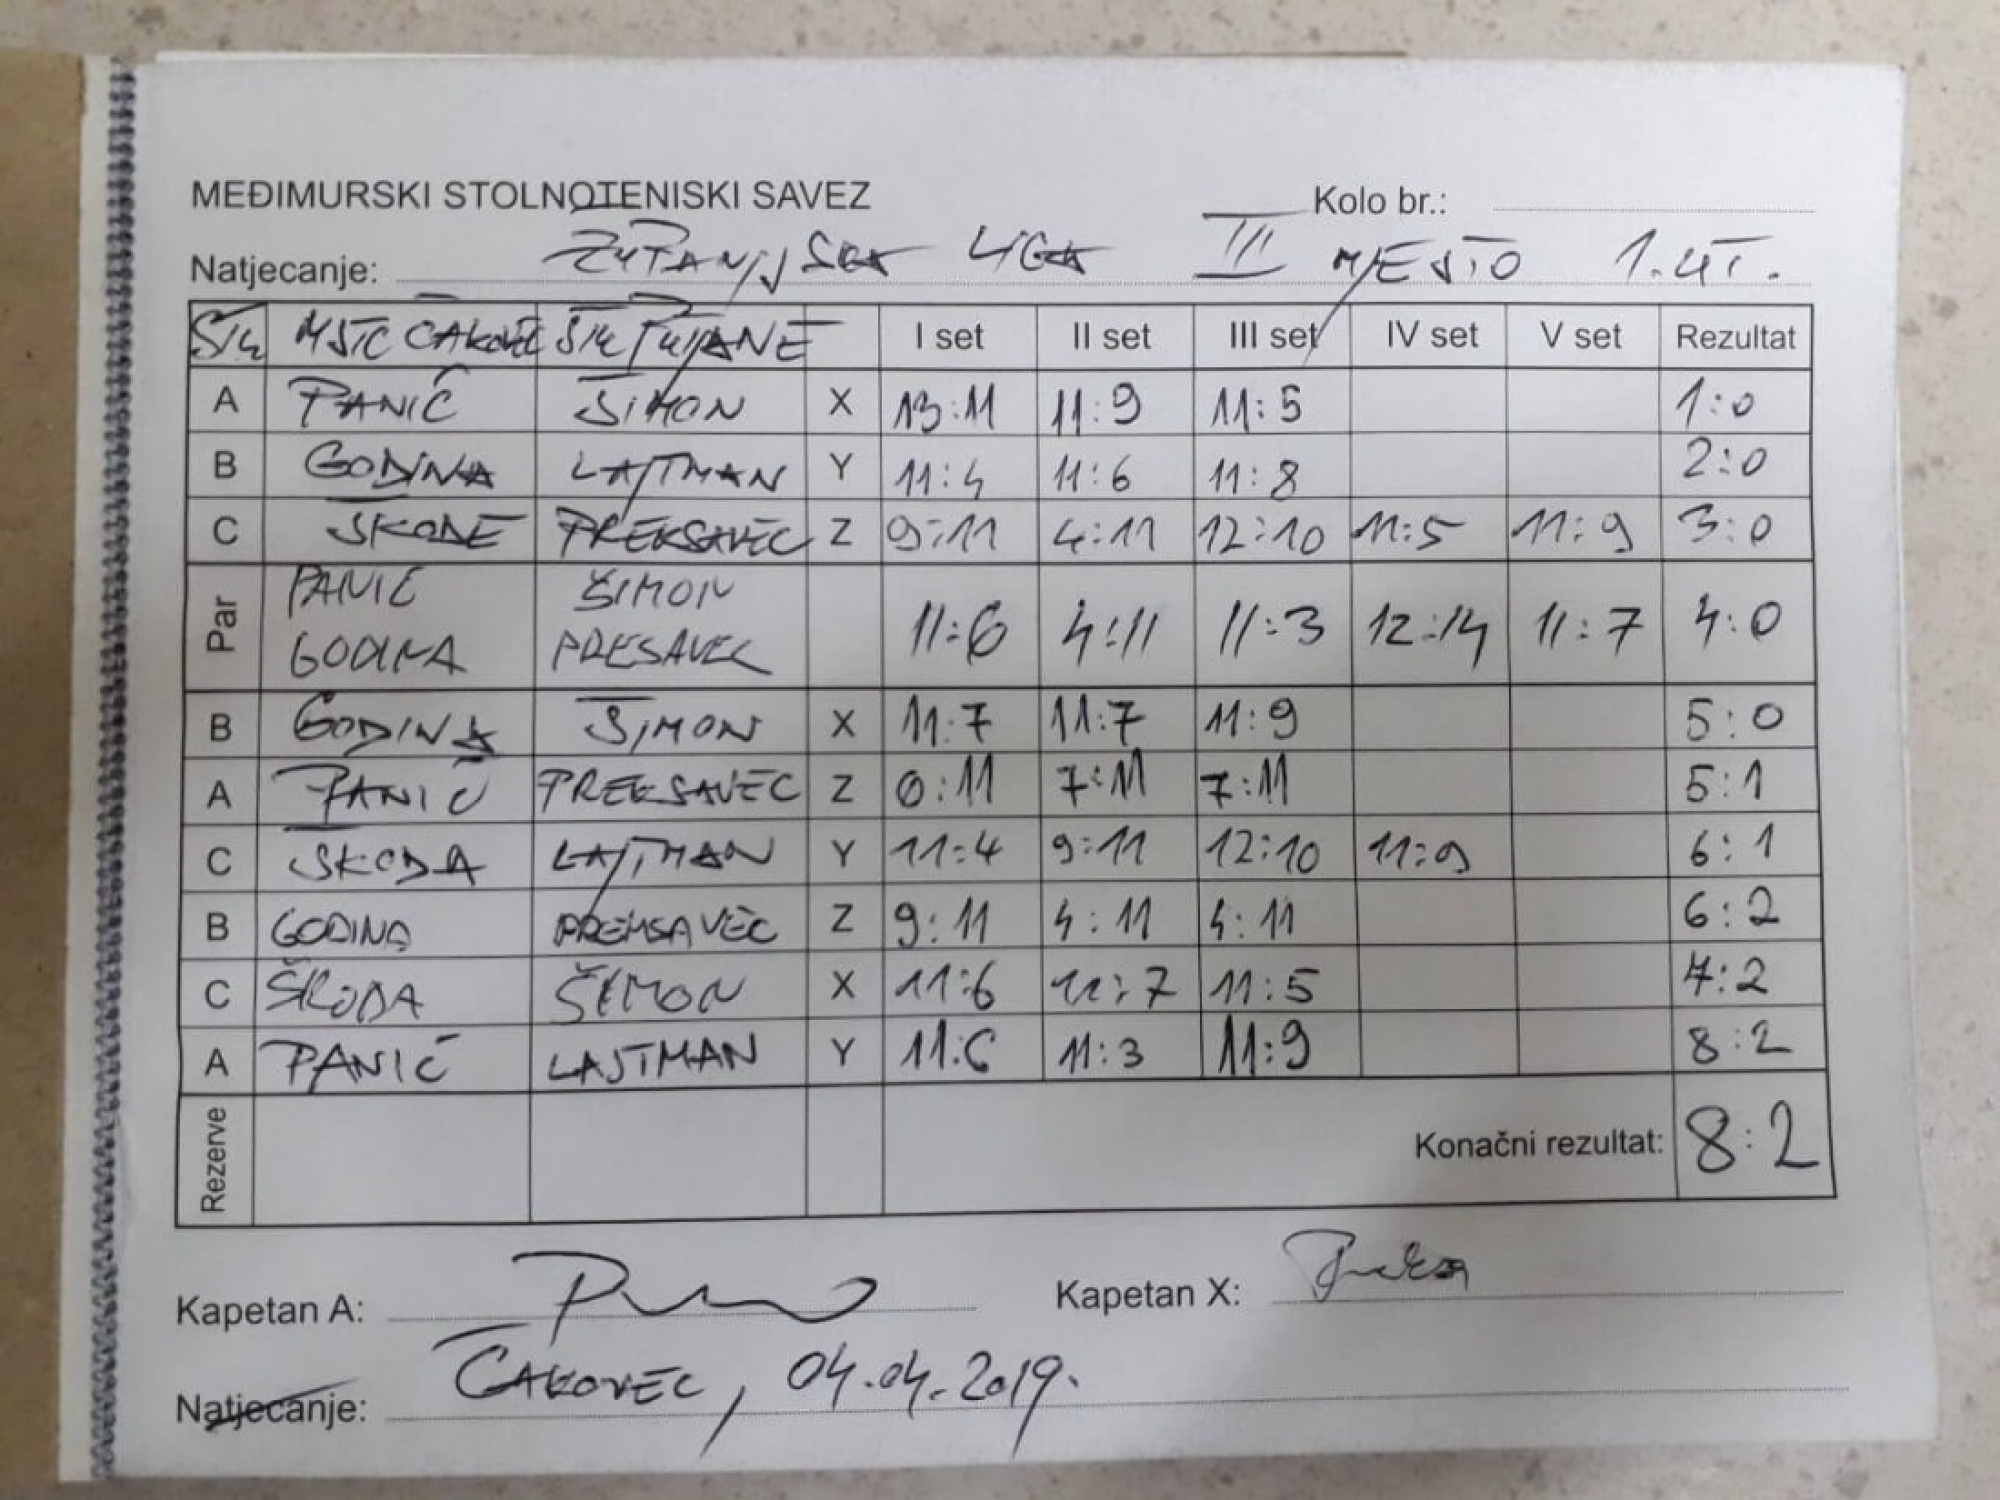 MEĐIMURSKI STOLNOTENISKI SAVEZ Kolo br.:
Natjecanje: ŽUPANIJSKA LIGA III MJESTO 1. UT.
MSTC ČAKOVEC I set II set III set IV set V set Rezultat
A PANIĆ ŠIMON X 13:11 11:9 11:5 1:0
B GODINA LAJTMAN Y 11:4 11:6 11:8 2:0
C PREKSAVEC Z 9:11 4:11 12:10 11:5 11:9 3:0
Par PANIĆ ŠIMON 11:6 4:11 11:3 12:14 11:7 4:0
GODINA PRESAVEC
B GODINA ŠIMON X 11:7 11:7 11:9 5:0
A PANIĆ PREKSAVEC Z 6:11 7:11 7:11 5:1
C ŠKODA LAJTMAN Y 11:4 9:11 12:10 11:9 6:1
B GODINA PREKSAVEC Z 9:11 4:11 4:11 6:2
C ŠKODA ŠIMON X 11:6 11:7 11:5 7:2
A PANIĆ LAJTMAN Y 11:6 11:3 11:9 8:2
Rezerve Konačni rezultat: 8:2
Kapetan A: Kapetan X:
Natjecanje: ČAKOVEC, 04.04.2019.